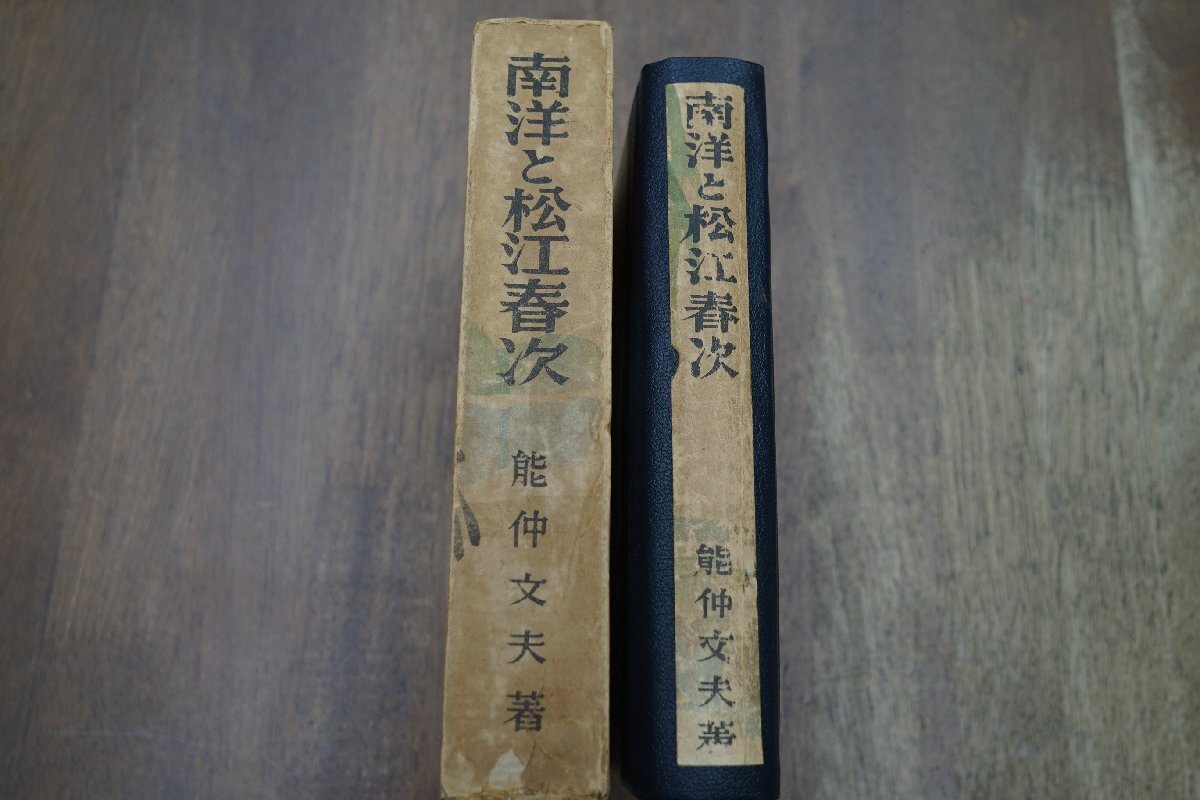 南洋と松江春次
能仲文夫著
南洋と松江春次
能仲文夫著